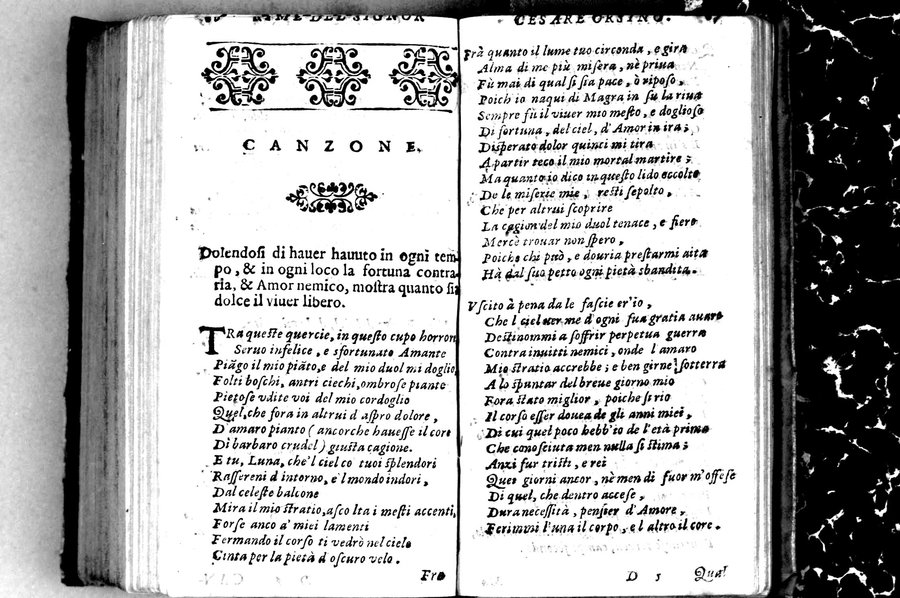 RIME DEL SIGNOR
CANZONE.
Dolendosi di hauer hauuto in ogni tem-
po, & in ogni loco la fortuna contra-
ria, & Amor nemico, mostra quanto sia
dolce il viuer libero.
TRa queste quercie, in questo cupo horrore
Seruo infelice, e sfortunato Amante
Piāgo il mio piāto, e del mio duol mi doglio,
Folti boschi, antri ciechi, ombrose piante
Pietose vdite voi del mio cordoglio
Quel, che fora in altrui d aspro dolore,
D'amaro pianto (ancorche hauesse il core
Di barbaro crudel) giusta cagione.
E tu, Luna, che'l ciel co tuoi splendori
Rassereni d intorno, e'l mondo indori,
Dal celeste balcone
Mira il mio stratio, ascolta i mesti accenti,
Forse anco a' miei lamenti
Fermando il corso ti vedrò nel cielo
Cinta per la pietà d oscuro velo.
Fra
CESARE ORSINO.
Frà quanto il lume tuo circonda, e gira
Alma di me più misera, nè priua
Fù mai di qual si sia pace, ò riposo,
Poich io naqui di Magra in su la riua
Sempre fù il viuer mio mesto, e doglioso
Di fortuna, del ciel, d'Amor in ira;
Disperato dolor quinci mi tira
A partir teco il mio mortal martire;
Ma quanto io dico in questo lido occolto
De le miserie mie, resti sepolto,
Che per altrui scoprire
La cagion del mio duol tenace, e fiero
Mercè trouar non spero,
Poiche chi può, e douria prestarmi aita
Hà dal suo petto ogni pietà sbandita.
Vscito à pena da le fascie er'io,
Che l ciel ver me d'ogni sua gratia auaro
Destinommi a soffrir perpetua guerra
Contra inuitti nemici, onde l amaro
Mio stratio accrebbe; e ben girne sotterra
A lo spuntar del breue giorno mio
Fora stato miglior, poiche si rio
Il corso esser douea de gli anni miei,
Di cui quel poco hebb'to de l'età prima
Che conosciuta men nulla si stima;
Anzi fur tristi, e rei
Quei giorni ancor, nè men di fuor m'offese
Di quel, che dentro accese,
Dura necessità, pensier d'Amore,
Ferimmi l'una il corpo, e l altro il core.
D 5 Qual